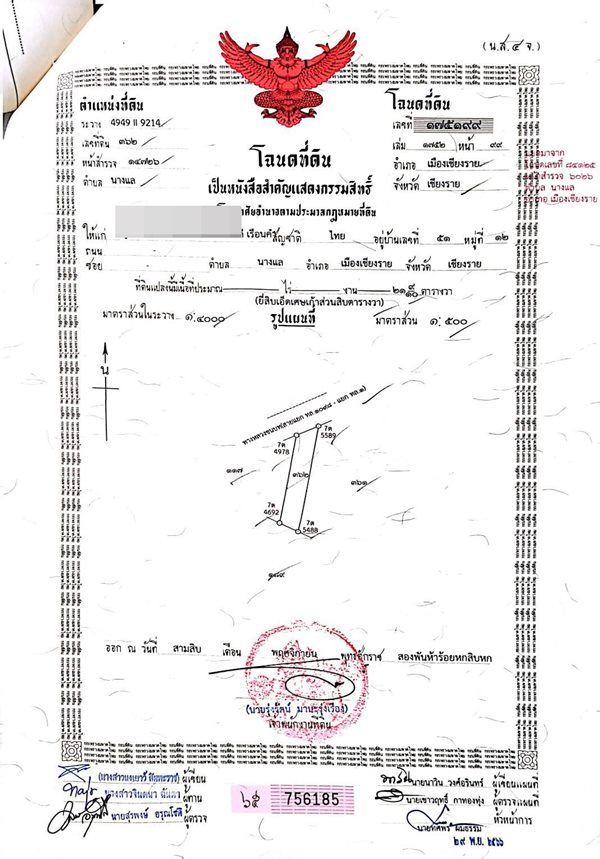 (น.ส.๔ จ.)
ตำแหน่งที่ดิน
ระวาง 4949 II 9214
เลขที่ดิน ๓๖๒
หน้าสำรวจ ๑๔๗๒๖
ตำบล นางแล
โฉนดที่ดิน
เลขที่ ๑๗๕๑๙๙
เล่ม ๑๗๕๒ หน้า ๙๙
อำเภอ เมืองเชียงราย
จังหวัด เชียงราย
โฉนดเลขที่ ๘๔๑๒๕
สำรวจ ๖๐๒๖
นางแล
เมืองเชียงราย
โฉนดที่ดิน
เป็นหนังสือสำคัญแสดงกรรมสิทธิ์
อาศัยอำนาจตามประมวลกฎหมายที่ดิน
ให้แก่ สัญชาติ ไทย อยู่บ้านเลขที่ ๕๑ หมู่ที่ ๑๒
ถนน
ซอย ตำบล นางแล อำเภอ เมืองเชียงราย จังหวัด เชียงราย
ที่ดินแปลงนี้มีเนื้อที่ประมาณ ไร่ งาน ๒๑ ๙/๑๐ ตารางวา
(ยี่สิบเอ็ดเศษเก้าส่วนสิบตารางวา)
มาตราส่วนในระวาง ๑:๔๐๐๐ รูปแผนที่ มาตราส่วน ๑:๕๐๐
น
7ต 5589
7ต 4978
๑๑๗
๓๖๒
๓๖๑
7ต 4692
7ต 5488
๑๗๙
ออก ณ วันที่ สามสิบ เดือน พฤศจิกายน พุทธศักราช สองพันห้าร้อยหกสิบหก
เจ้าพนักงานที่ดิน
ผู้เขียน
ผู้ทาน
นายสุรพงษ์ อรุณโชติ ผู้ตรวจ
๖๕ 756185
นายนาวิน วงศ์อรินทร์ ผู้เขียนแผนที่
นายเชาวฤทธิ์ กาทองทุ่ง ผู้ตรวจแผนที่
หัวหน้าการ
๒๙ พ.ย. ๒๕๖๖